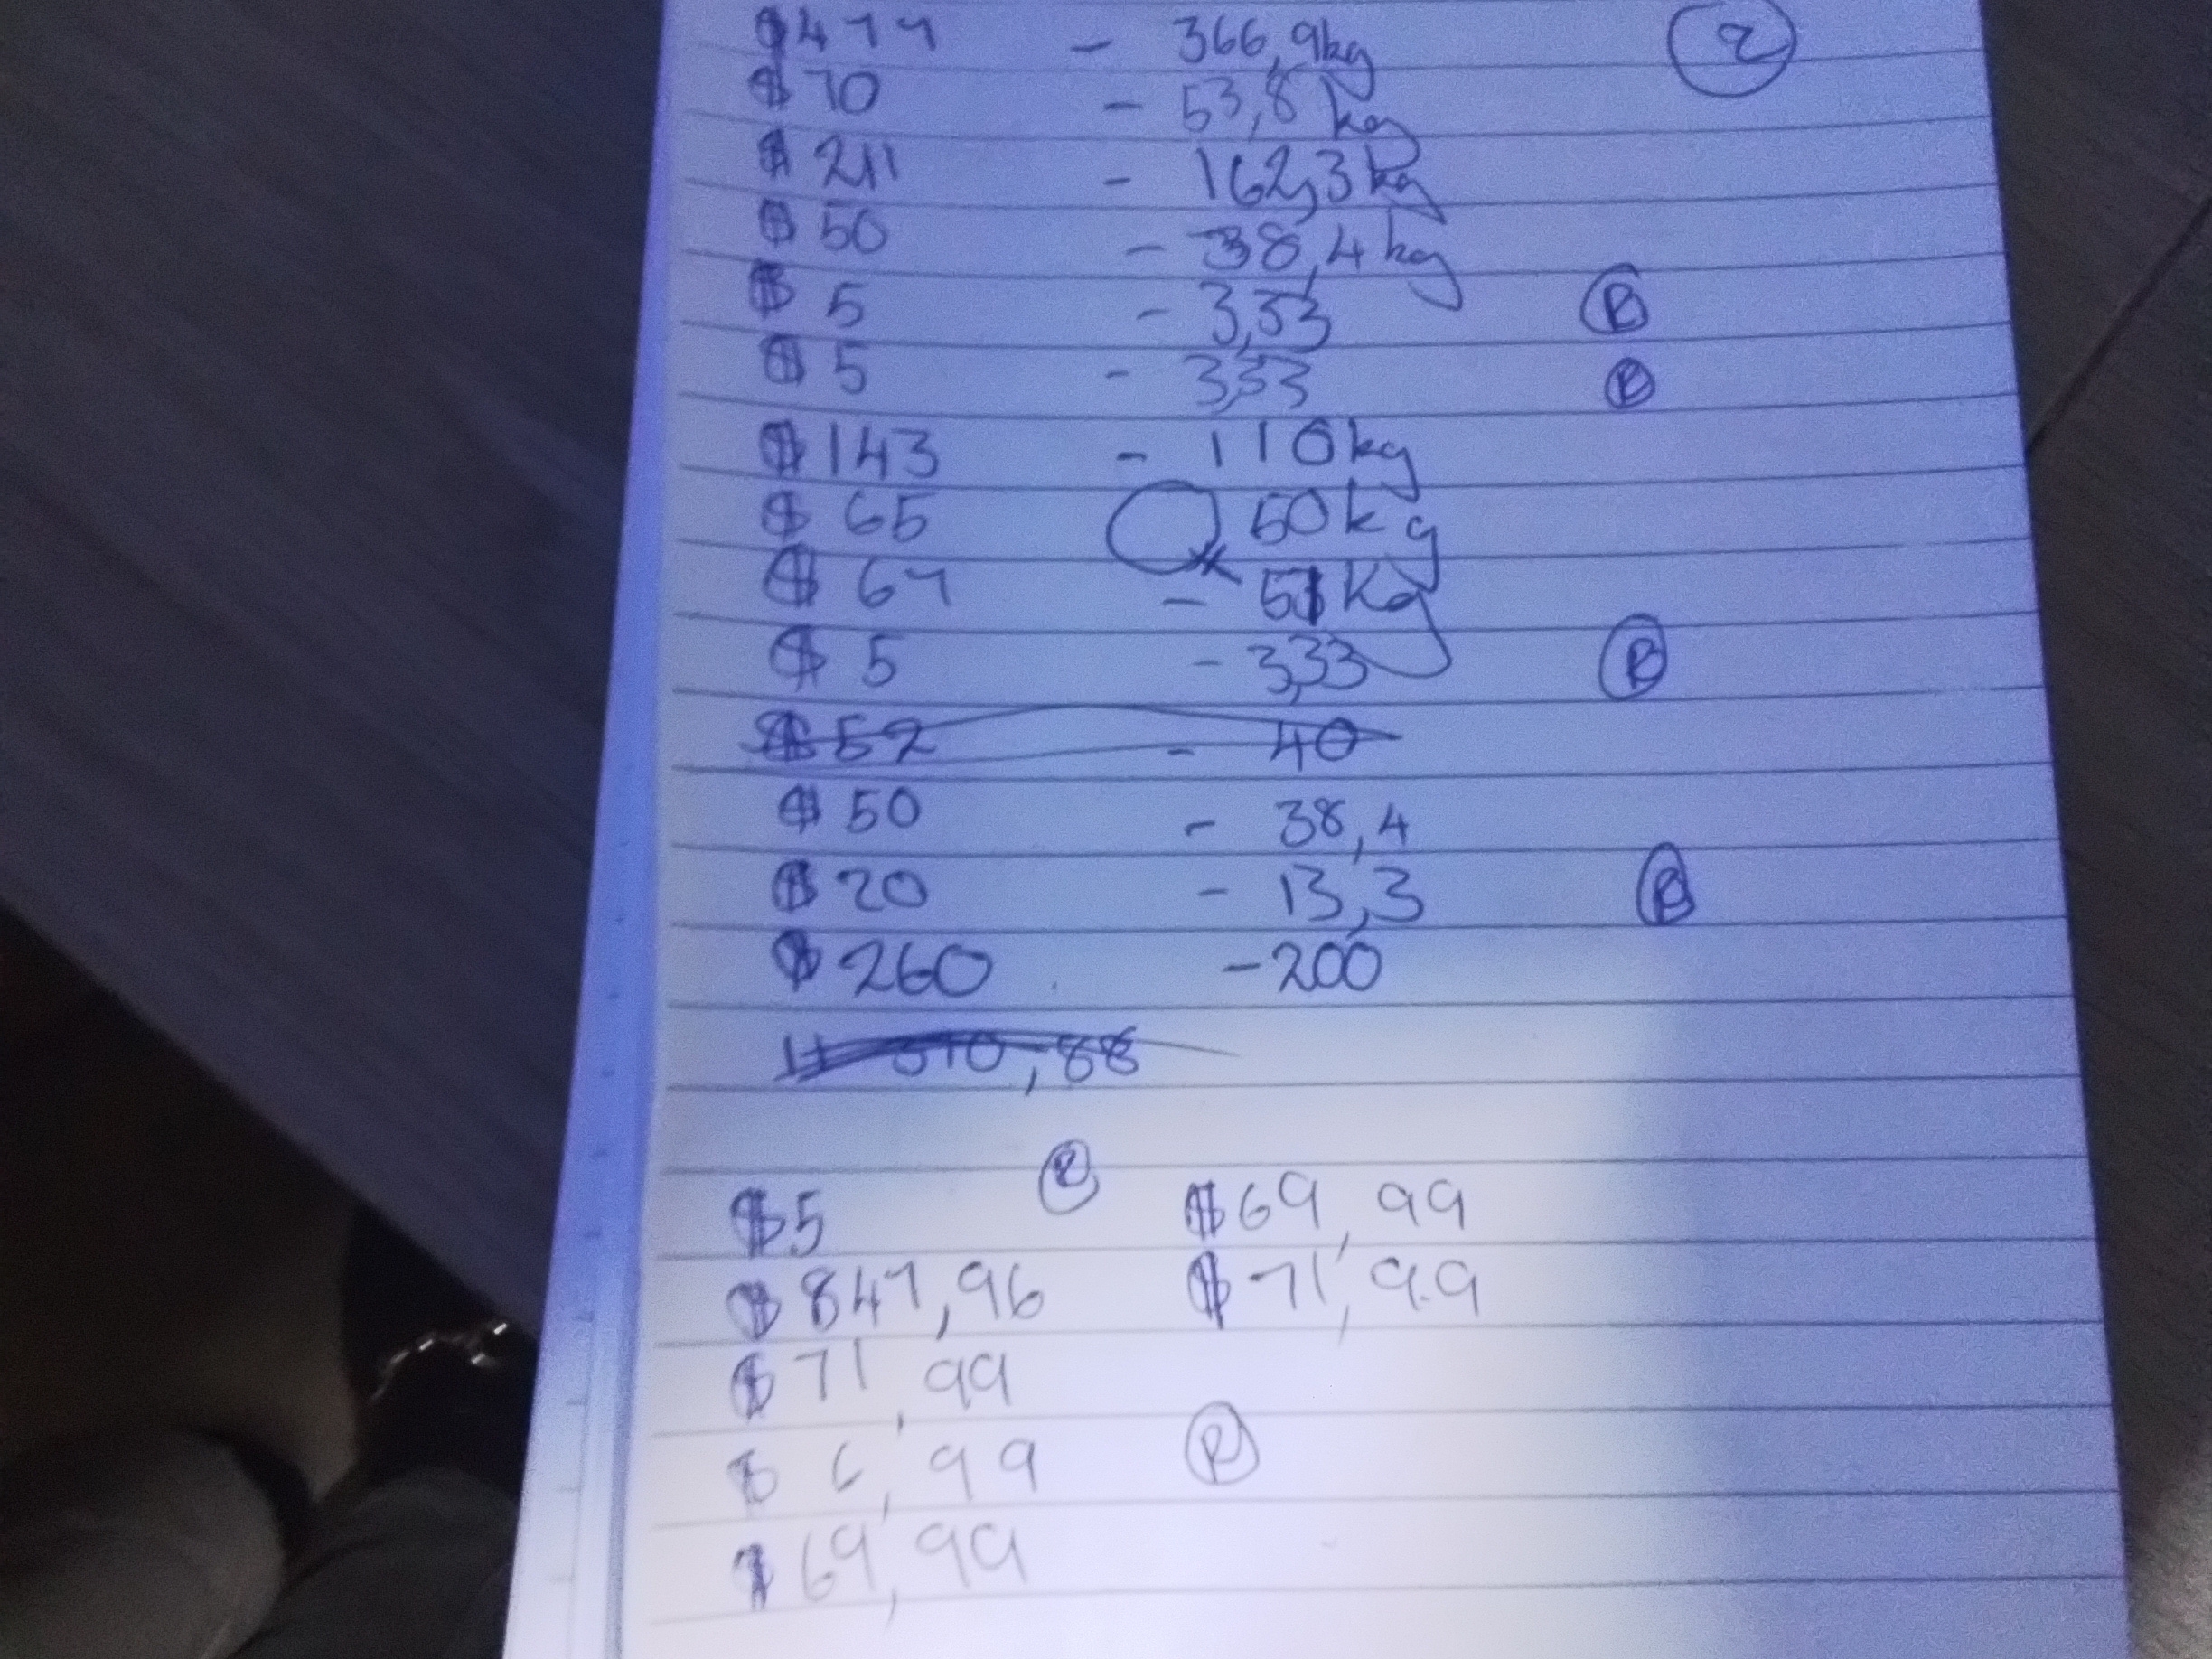 $477 - 366,9kg ②
$70 - 53,8 kg
$211 - 162,3 kg
$50 - 38,4 kg
$5 - 3,33 Ⓡ
$5 - 3,33 Ⓡ
$143 - 110kg
$65 50kg
$67 - 51Kg
$5 - 3,33 Ⓡ
$52 - 40
$50 - 38,4
$20 - 13,3 Ⓡ
$260 - 200
,88
$5 Ⓡ $69,99
$847,96 $71,99
$71,99
$6,99 Ⓡ
$69,99